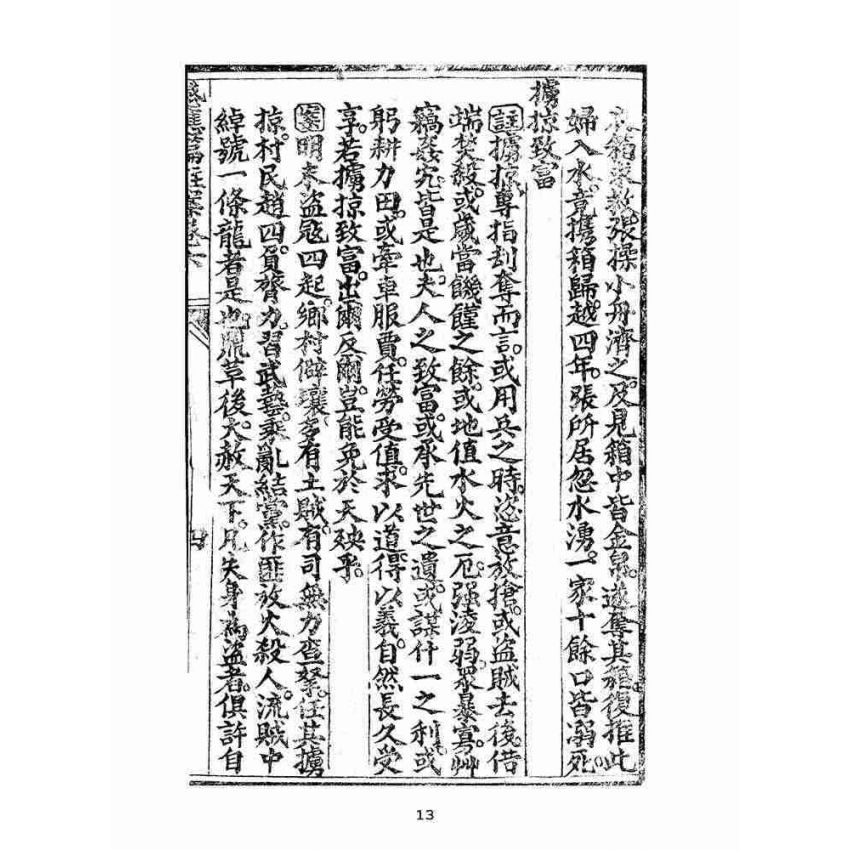 衣箱求救張操小舟濟之及見箱中皆金帛遂奪其箱復推此
婦入水竟携箱歸越四年張所居忽水湧一家十餘口皆溺死
擄掠致富
註擄掠專指刦奪而言或用兵之時恣意放搶或盜賊去後借
端焚殺或歲當饑饉之餘或地值水火之厄强淩弱眾暴寡艸
竊姦宄皆是也夫人之致富或承先世之遺或謀什一之利或
躬耕力田或牽車服賈任勞受值求以道得以義自然長久受
享若擄掠致富出爾反爾豈能免於天殃乎
案明末盜冦四起鄉村僻壤多有土賊有司無力查拏任其擄
掠村民趙四負膂力習武藝乘亂結黨作匪放火殺人流賊中
綽號一條龍者是也鼎革後大赦天下凡失身為盜者俱許自
感應篇註案卷六
13